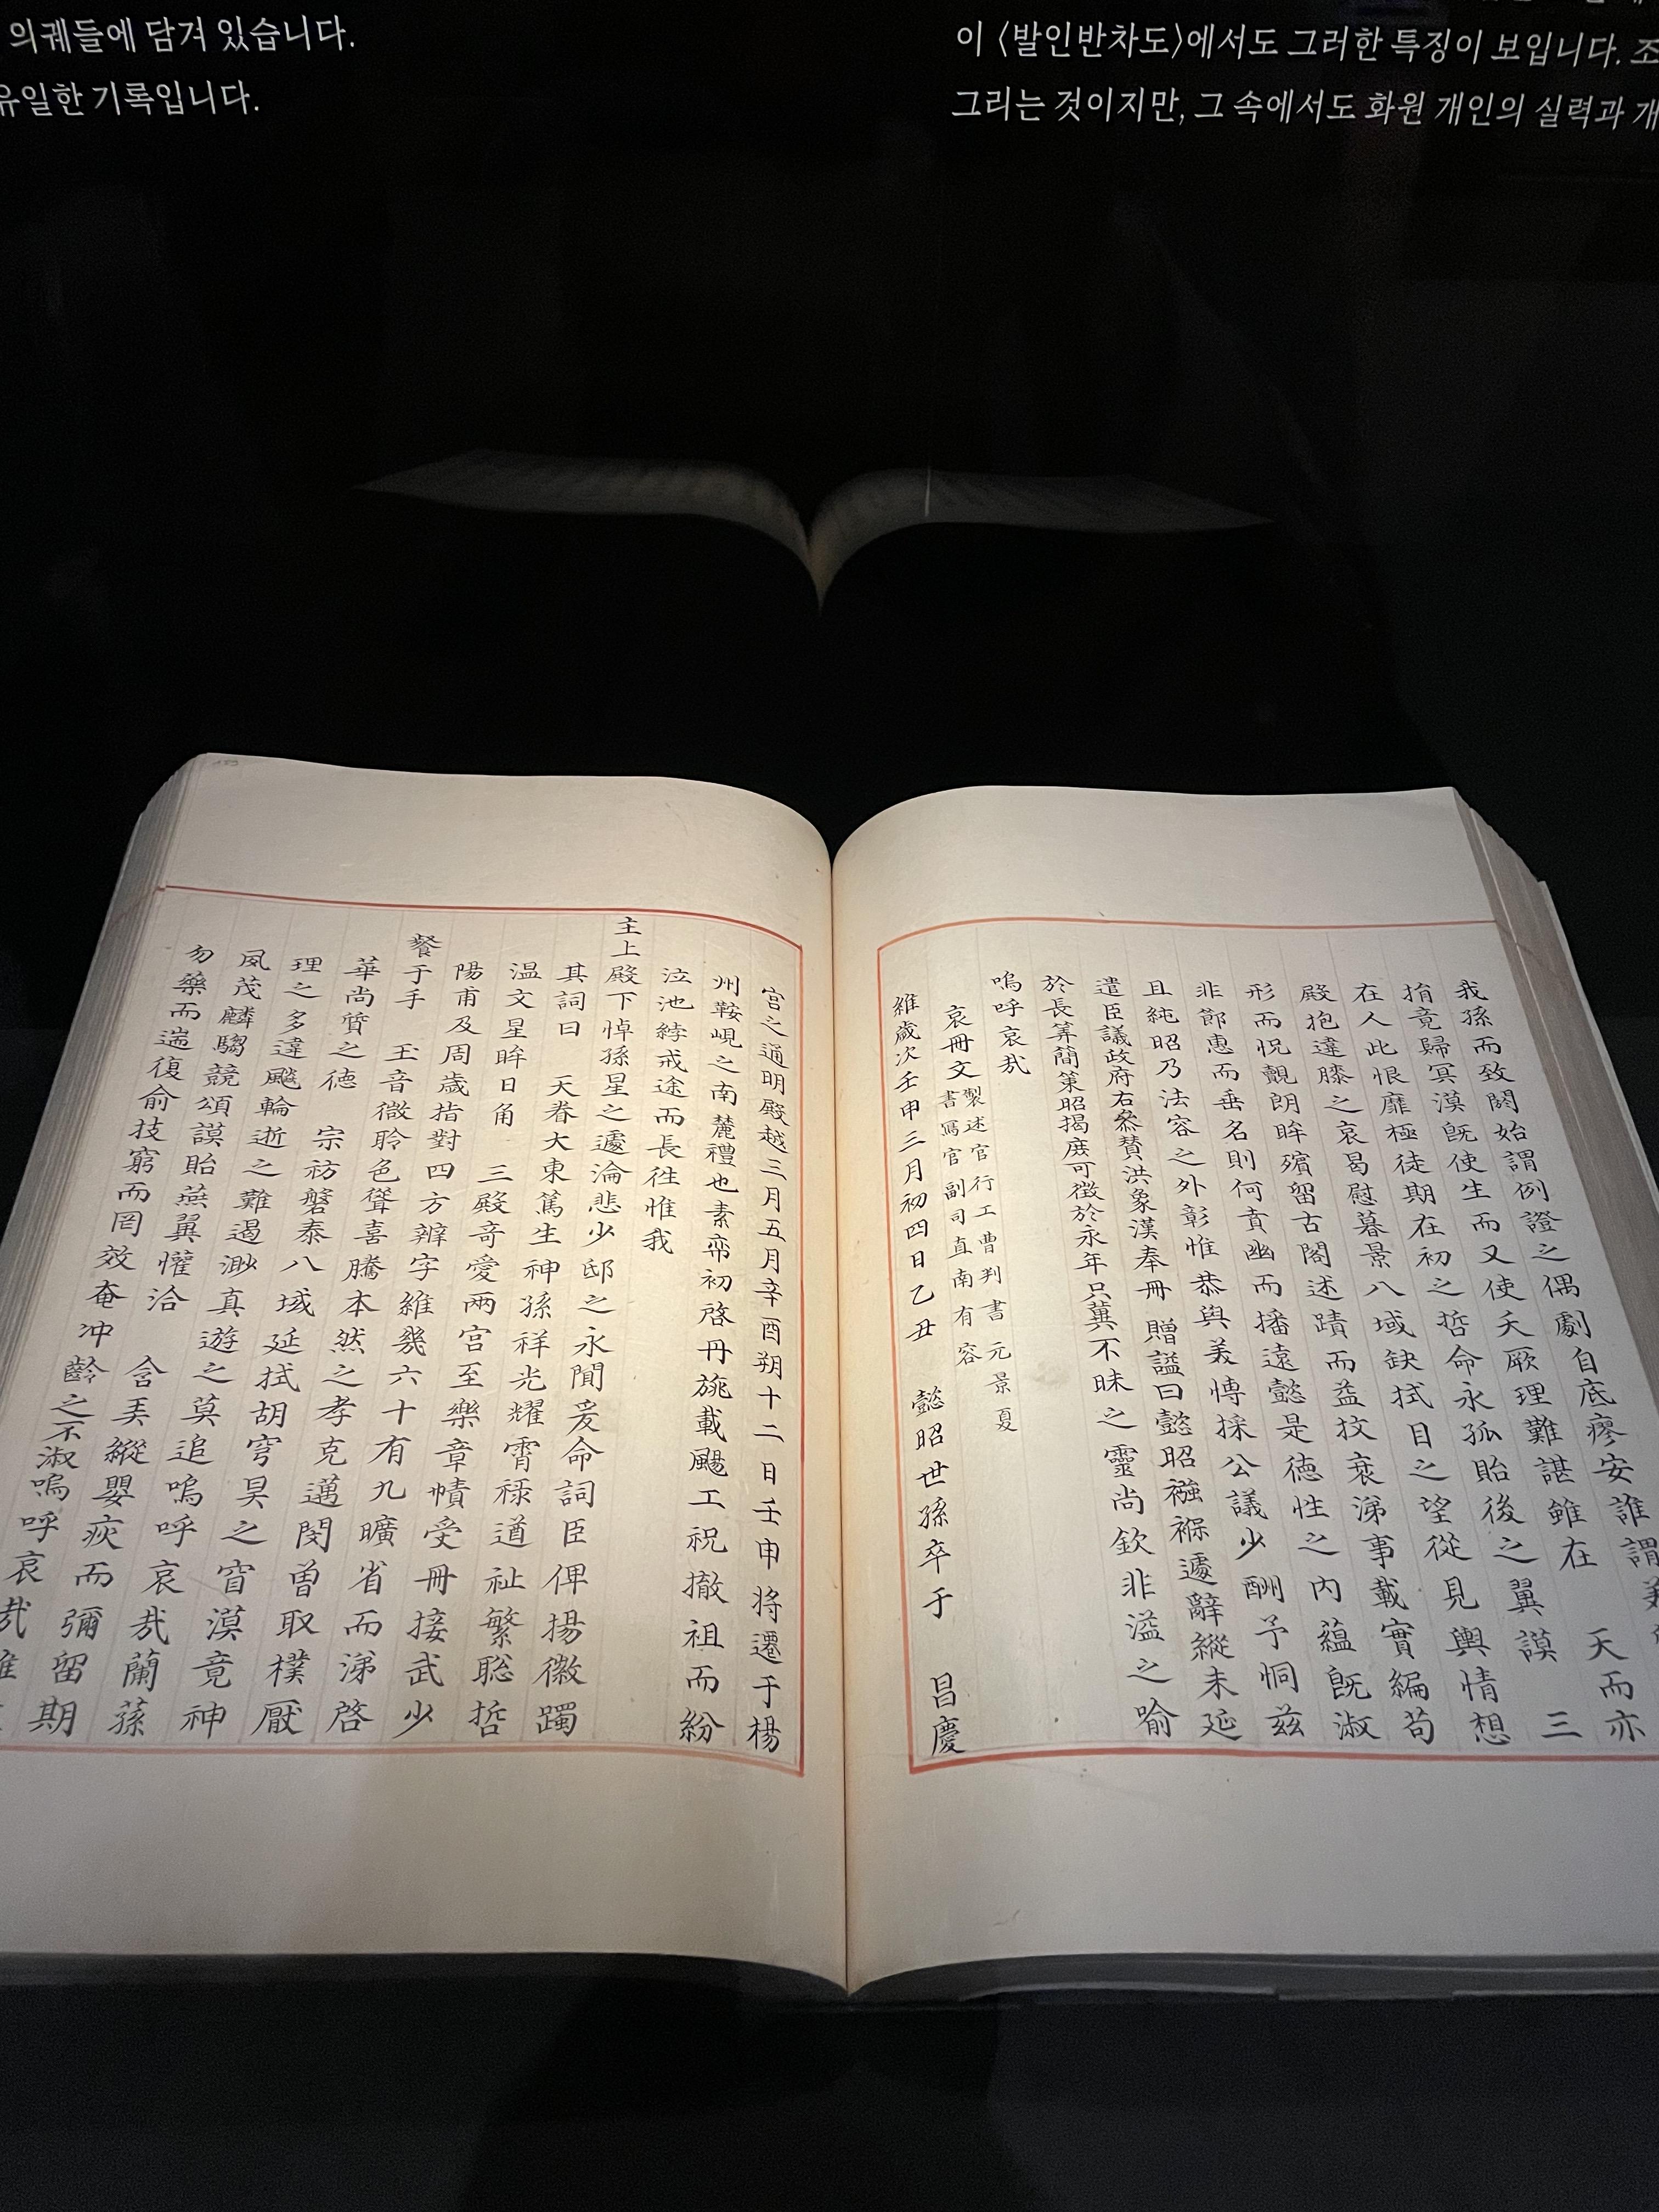 의궤들에 담겨 있습니다.
유일한 기록입니다.
이 〈발인반차도〉에서도 그러한 특징이 보입니다. 조
그리는 것이지만, 그 속에서도 화원 개인의 실력과 개
我孫而致閼始謂例證之偶劇自底瘳安誰謂
捐竟歸冥漠旣使生而又使夭厥理難諶雖在 天而亦
在人此恨靡極徒期在初之哲命永孤貽後之翼謨 三
殿抱違膝之哀曷慰暮景八域缺拭目之望從見輿情想
形而怳覿朗眸殯留古閤述蹟而益抆衰涕事載實編苟
非節惠而垂名則何賁幽而播遠懿是德性之内蘊旣淑
且純昭乃法容之外彰惟恭與美博採公議少酬予恫玆
遣臣議政府右叅贊洪象漢奉冊 贈諡曰懿昭襁褓遽辭縱未延
於長筭簡策昭揭庶可徵於永年只冀不昧之靈尚欽非溢之喩
嗚呼哀哉
哀冊文 製述官行工曹判書元景夏
書寫官副司直南有容
維歲次壬申三月初四日乙丑 懿昭世孫卒于 昌慶
宮之通明殿越三月五月辛酉朔十二日壬申将遷于楊
州鞍峴之南麓禮也素帟初啓丹旐載颺工祝撤祖而紛
泣池綍戒途而長徃惟我
主上殿下悼孫星之遽淪悲少邸之永閴爰命詞臣俾揚徽躅
其詞曰 天眷大東篤生神孫祥光耀霄祿遒祉繁聡哲
温文星眸日角 三殿竒愛兩宮至樂章幘受冊接武少
陽甫及周歲指對四方辨字維幾六十有九曠省而涕啓
餐于手 玉音微聆色聳喜騰本然之孝克邁閔曽取樸厭
華尚質之德 宗祊磐泰八域延拭胡穹昊之窅漠竟神
理之多違飈輪逝之難遏渺真遊之莫追嗚呼哀哉蘭蓀
夙茂麟騶競頌謨貽燕翼懽洽 含美縱嬰疢而彌留期
勿藥而遄復俞技窮而罔效奄冲齡之不淑嗚呼哀哉